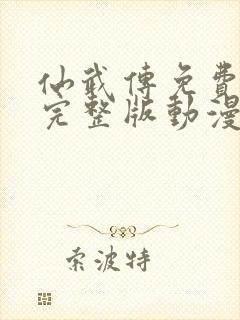 仙武傳免費
完整版動漫
索波特